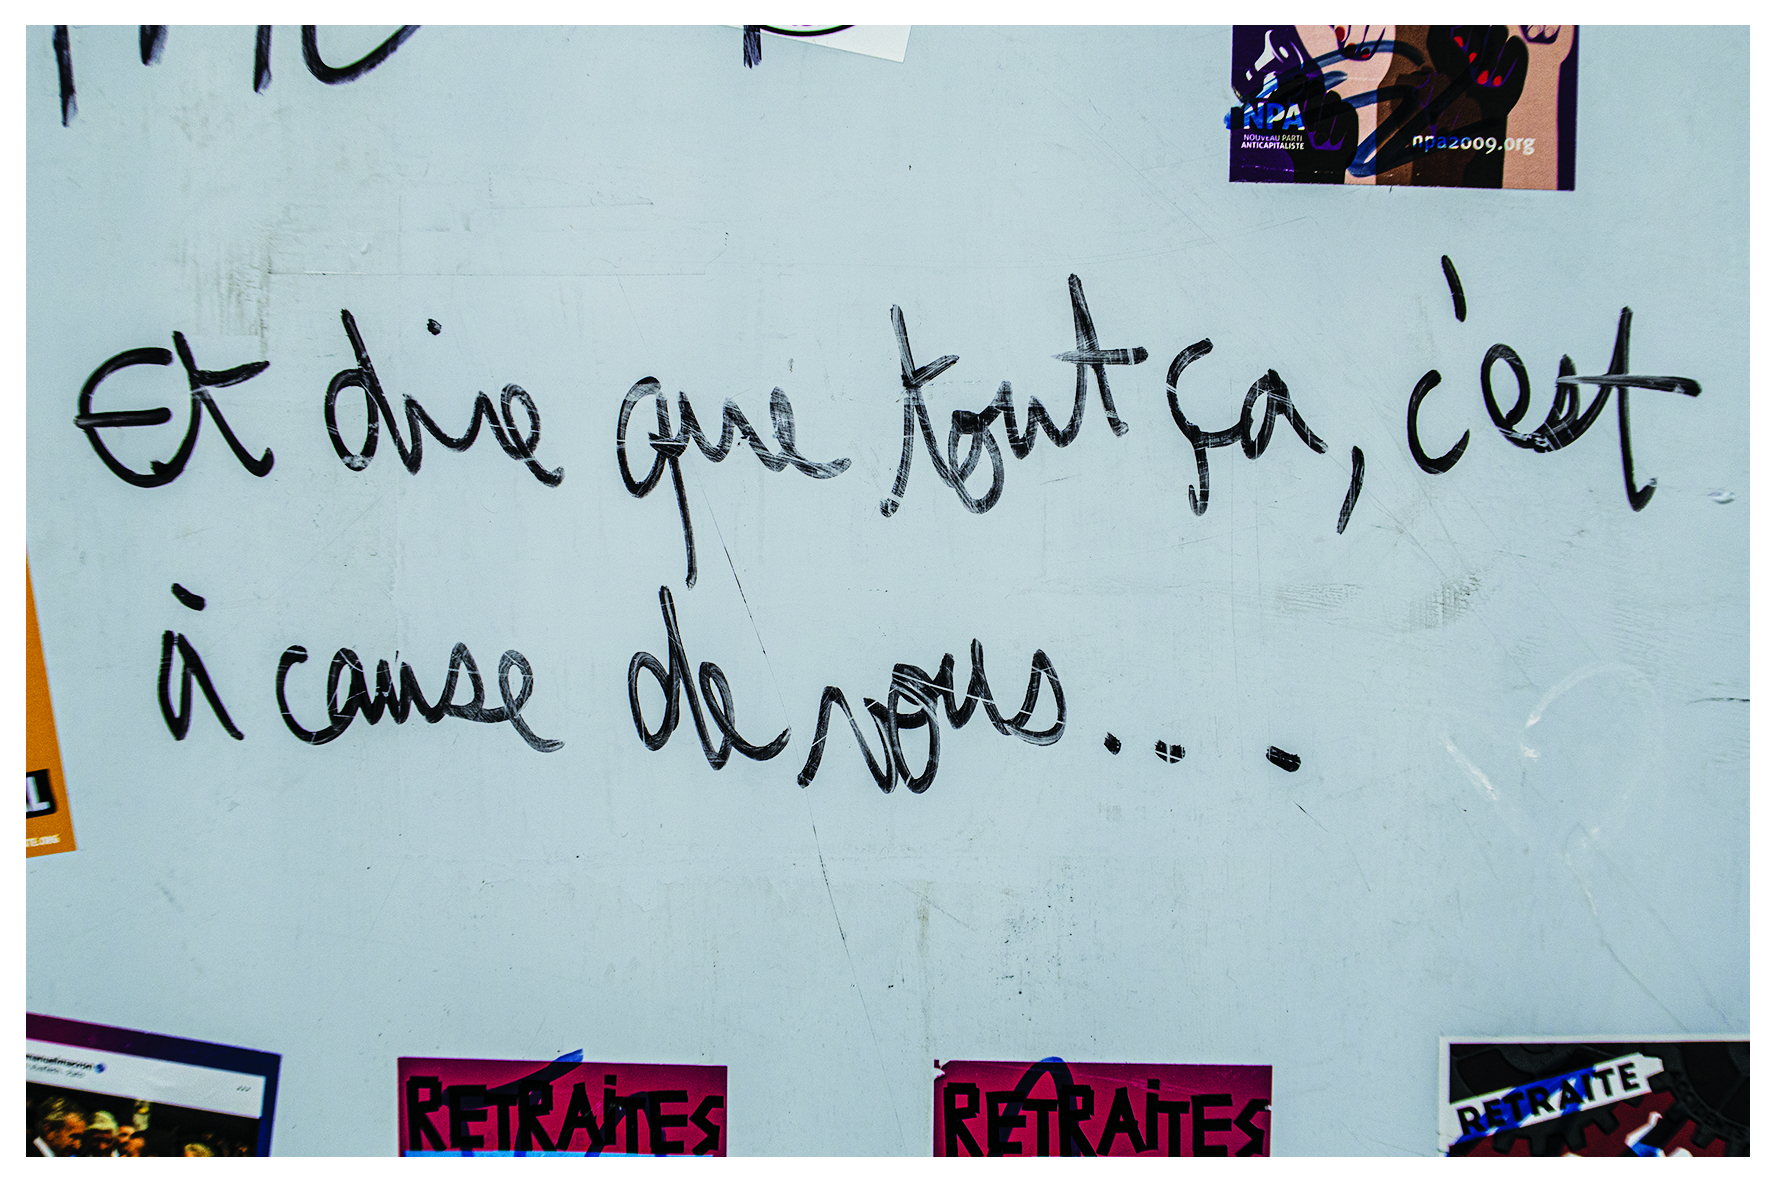 NPA
NOUVEAU PARTI
ANTICAPITALISTE
npa2009.org
Et dire que tout ça, c'est
à cause de vous...
RETRAITES
RETRAITES
RETRAITE